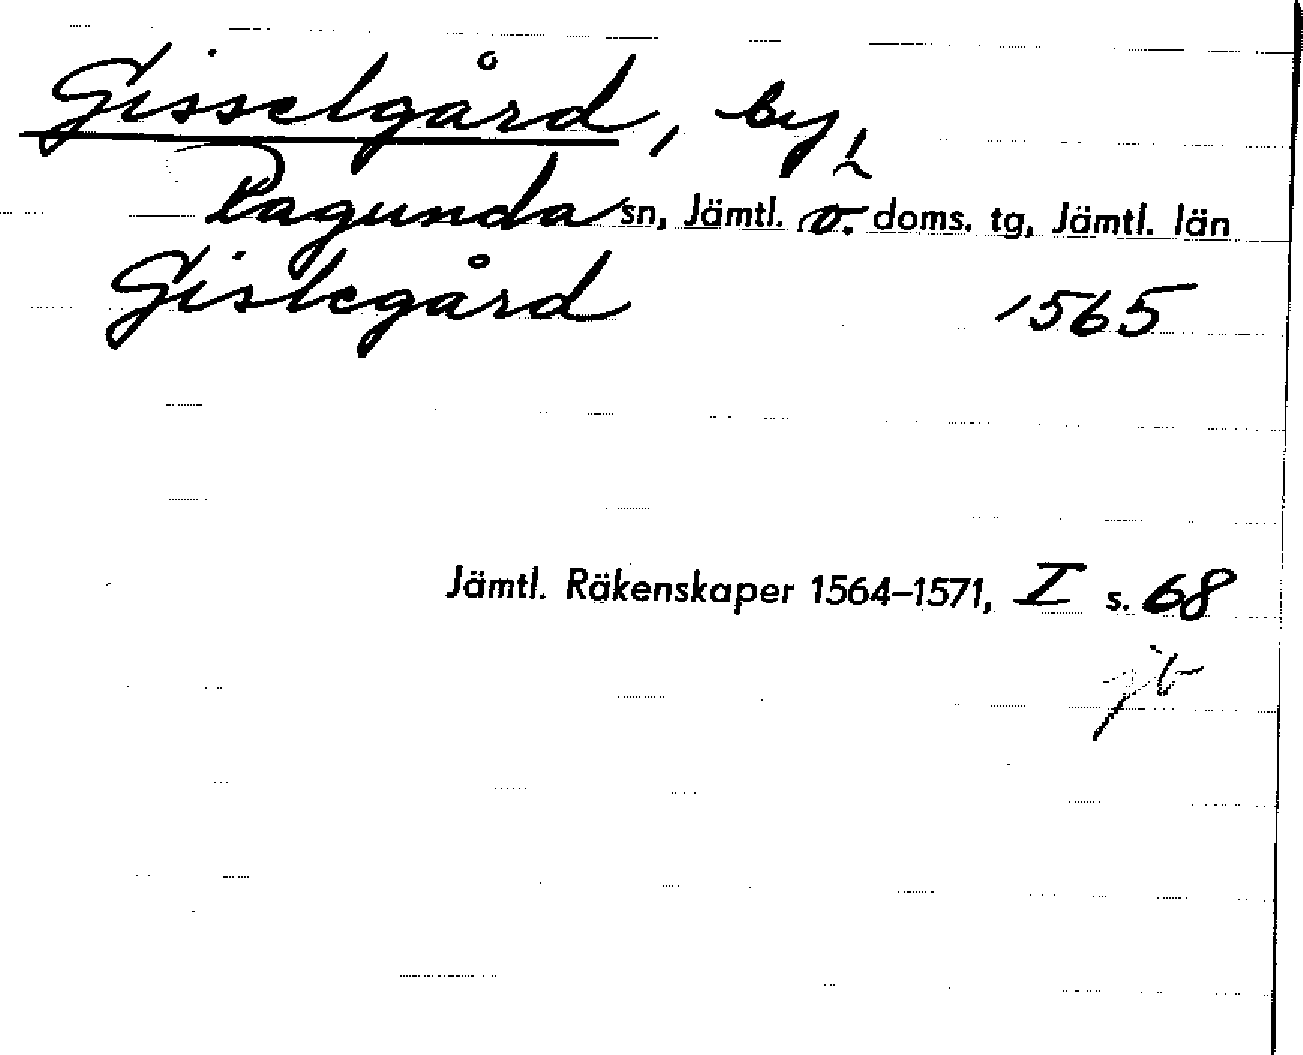 Gisselgård, by,
Ragunda sn, Jämtl. ö. doms. tg, Jämtl. län
Gislegård 1565
Jämtl. Räkenskaper 1564–1571, I s. 68